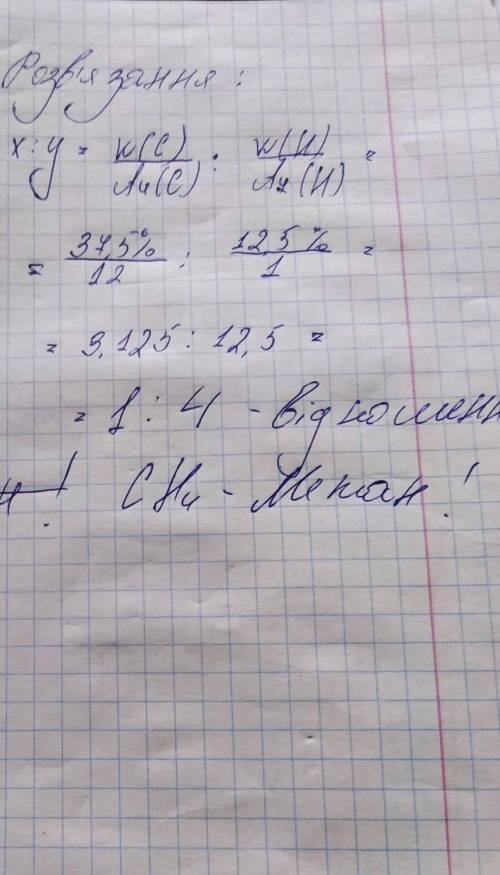 Розв'язання :
x : y = w(C)/Ar(C) : w(H)/Ar(H) =
= 37,5%/12 : 12,5%/1 =
= 3,125 : 12,5 =
= 1 : 4 - відношенн
! CH4 - Метан !